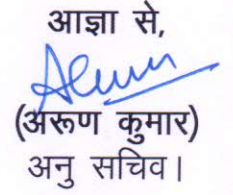 आज्ञा से,
(अरूण कुमार)
अनु सचिव।